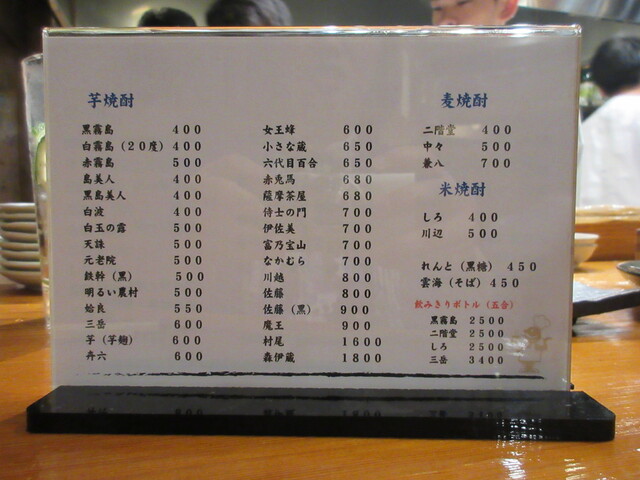 芋焼酎
黒霧島 400
白霧島（20度）400
赤霧島 500
島美人 400
黒島美人 400
白波 400
白玉の露 500
天誅 500
元老院 500
鉄幹（黒） 500
明るい農村 500
姶良 550
三岳 600
芋（芋麹） 600
弁六 600
女王蜂 600
小さな蔵 650
六代目百合 650
赤兎馬 680
薩摩茶屋 680
侍士の門 700
伊佐美 700
富乃宝山 700
なかむら 700
川越 800
佐藤 800
佐藤（黒） 900
魔王 900
村尾 1600
森伊蔵 1800
麦焼酎
二階堂 400
中々 500
兼八 700
米焼酎
しろ 400
川辺 500
れんと（黒糖） 450
雲海（そば）450
飲みきりボトル（五合）
黒霧島 2500
二階堂 2500
しろ 2500
三岳 3400